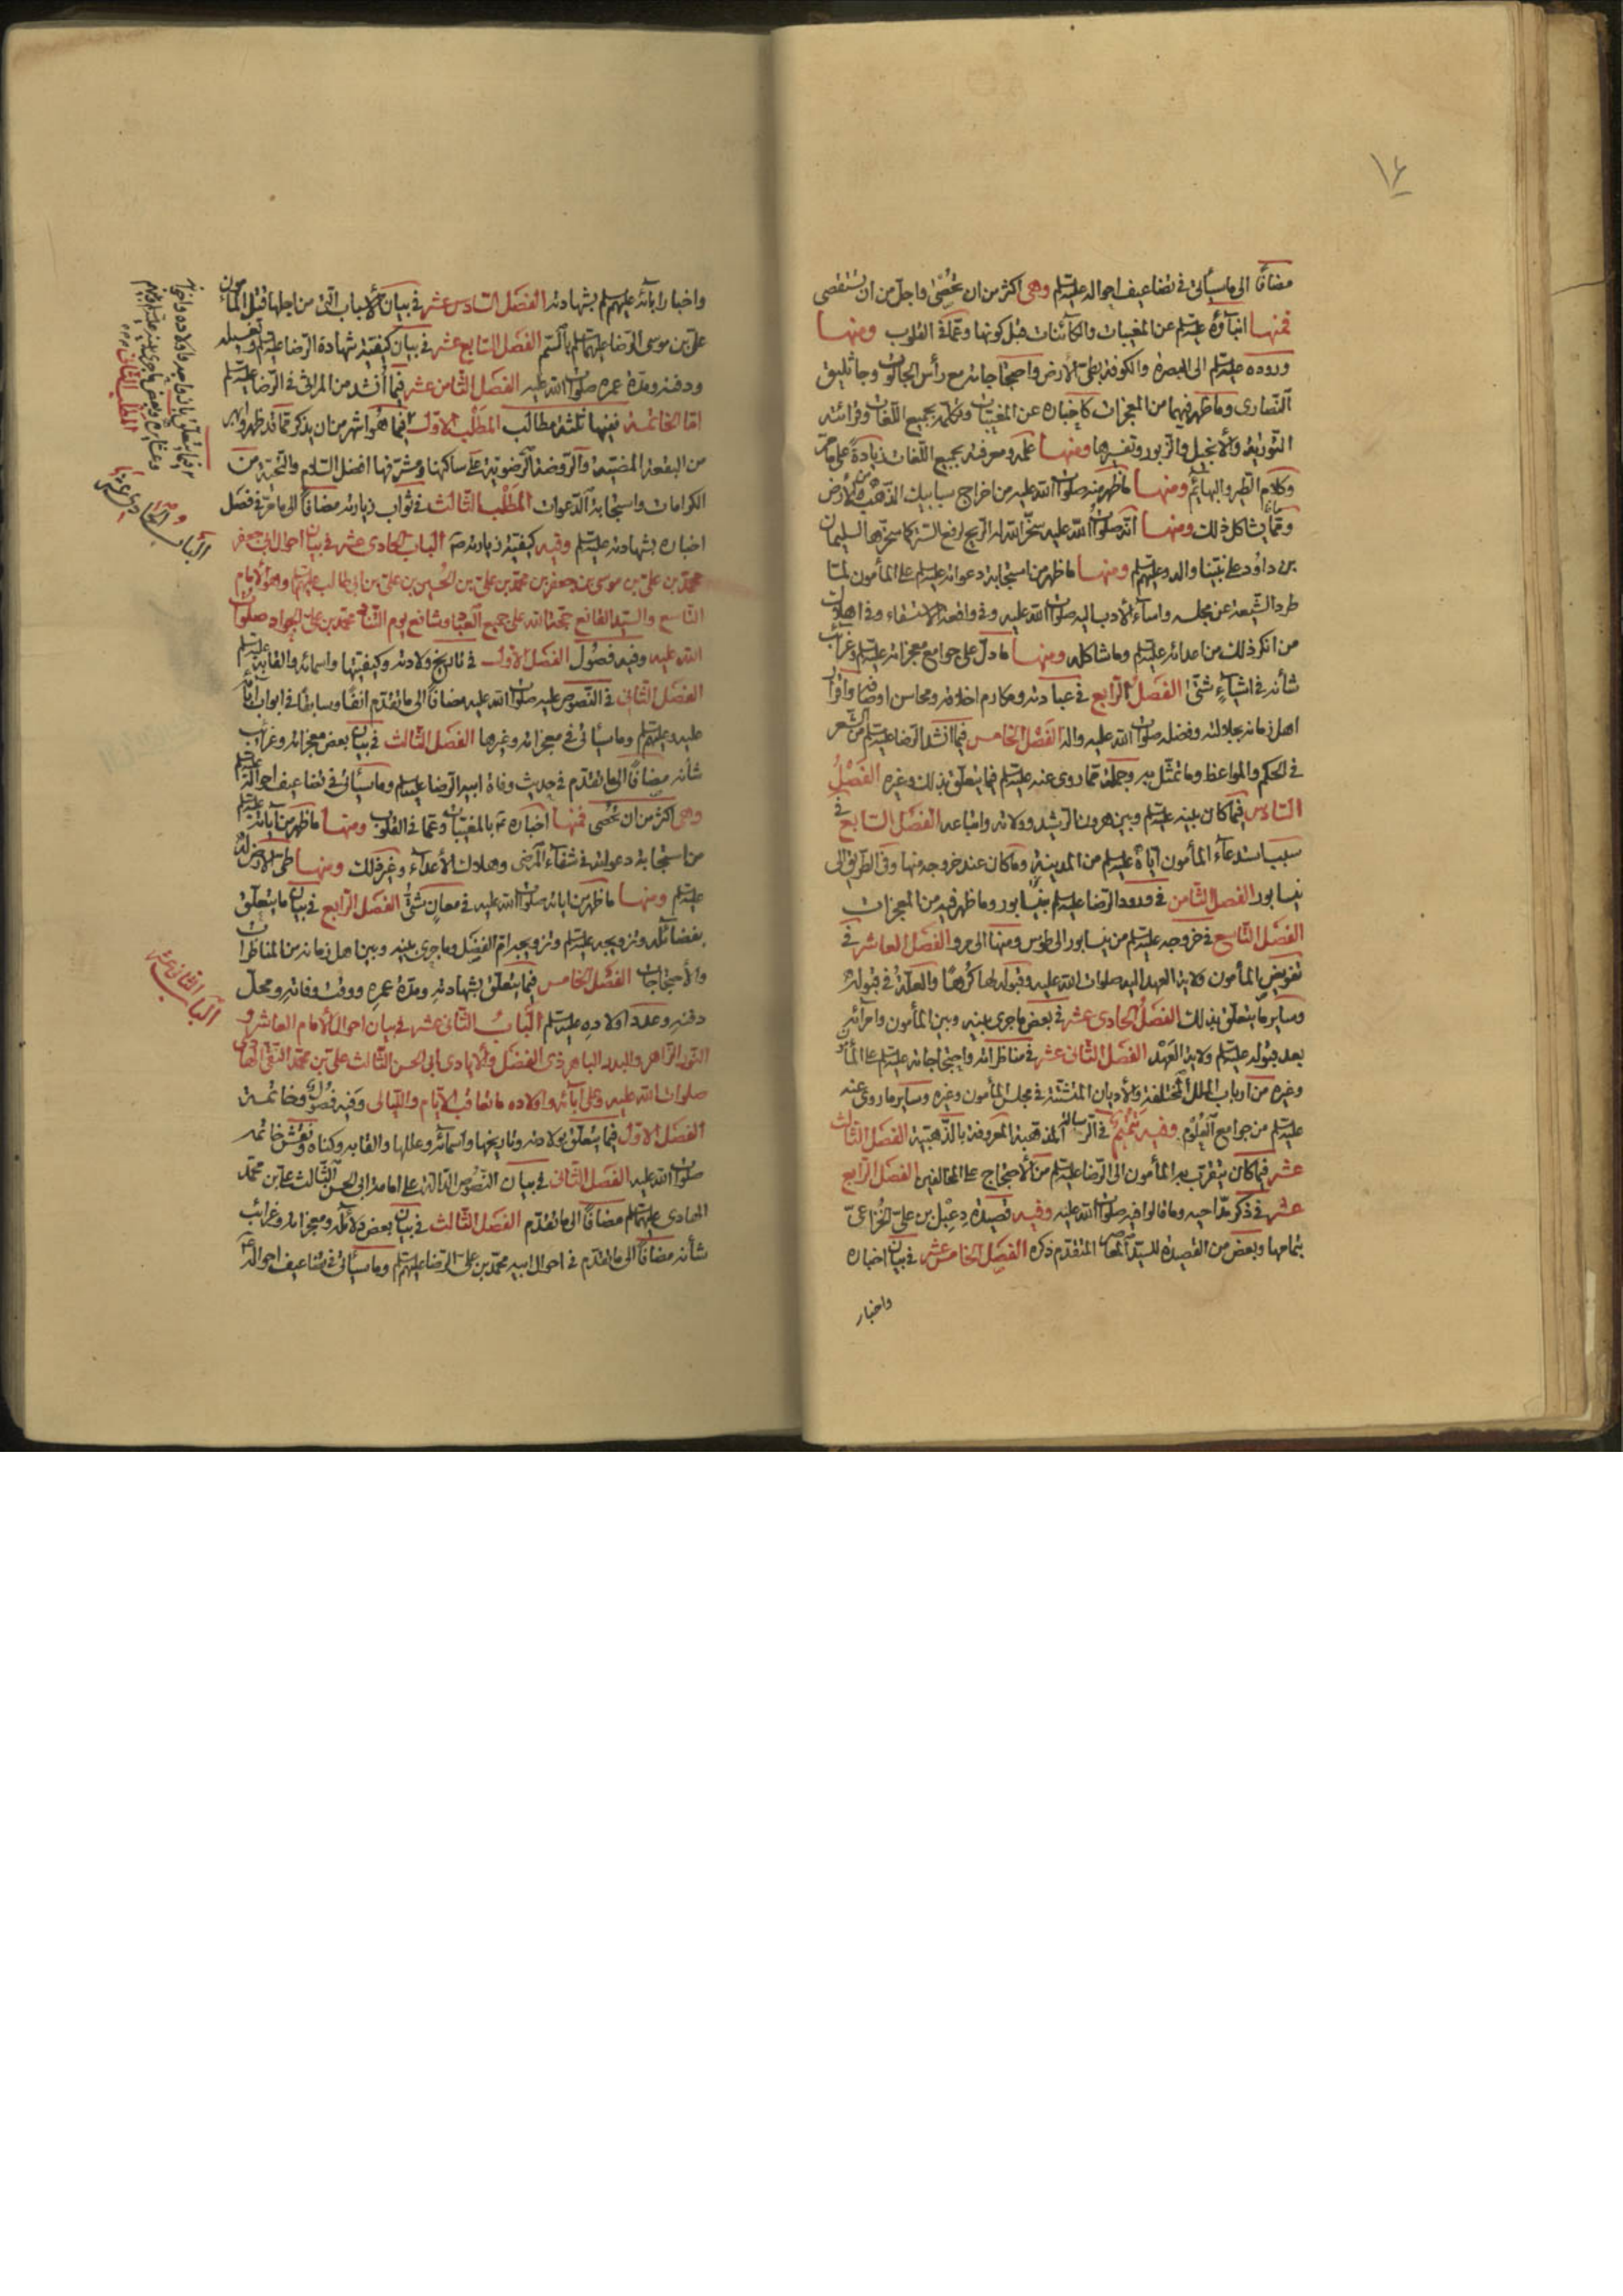 ١٤
مضافًا الى ما سيأتى فى تضاعيف احواله عليه السلم وهى اكثر من ان تحصى واجلّ من ان تستقصى
فمنها انباؤه عليه السلم عن المغيبات والكائنات قبل كونها وعمّا فى القلوب ومنها
وروده عليه السلم الى البصرة والكوفة بطىّ الأرض واحتجاجاته مع رأس الجالوت وجاثليق
النصارى وما ظهر فيهما من المعجزات كاخباره عن المغيبات وتكلّمه بجميع اللغات وقرائته
التورية والأنجيل والزبور وتفسيرها ومنها علمه ومعرفته بجميع اللغات زيادة على ما مرّ
وكلام الطير والبهائم ومنها ما ظهر منه صلوات الله عليه من اخراج سبائيك الذهب من الأرض
وممّا يشاكل ذلك ومنها انّه صلوات الله عليه سخّر الله له الريح لرفع الستر كما سخّرها لسليمان
بن داود على نبيّنا واله وعليهم السلم ومنها ما ظهر من استجابة دعواته عليه السلم على المأمون لمّا
طرد الشيعة عن مجلسه واساء الأدب اليه صلوات الله عليه وفى واقعة الاستسقاء وفى اهلاك
من انكر ذلك من اعدائه عليه السلم وما شاكله ومنها ما دلّ على جوامع معجزاته عليه السلم وغرائب
شأنه فى اشياء شتّى الفصل الرابع فى عبادته ومكارم اخلاقه ومحاسن اوصافه واقرار
اهل زمانه بجلالته وفضله صلوات الله عليه واله الفصل الخامس فيما انشد الرضا عليه السلم من الشعر
فى الحكم والمواعظ وما تمثّل به وجملة ممّا روى عنه عليه السلم فيما يتعلّق بذلك وغيره الفصل
السادس فيما كان بينه عليه السلم وبين هرون الرشيد وولاته واتباعه الفصل السابع فى
سبب استدعاء المأمون ايّاه عليه السلم من المدينة وما كان عند خروجه منها وفى الطريق الى
نيسابور الفصل الثامن فى ورود الرضا عليه السلم بنيسابور وما ظهر فيه من المعجزات
الفصل التاسع فى خروجه عليه السلم من نيسابور الى طوس ومنها الى مرو الفصل العاشر فى
تفويض المأمون ولاية العهد اليه صلوات الله عليه وقبوله لها كرهًا والعلّة فى قبوله
وساير ما يتعلّق بذلك الفصل الحادى عشر فى بعض ما جرى بينه وبين المأمون وامرائه
بعد قبوله عليه السلم ولاية العهد الفصل الثانى عشر فى مناظراته واحتجاجاته عليه السلم على المأمون
وغيره من ارباب الملل المختلفة والأديان المتشتّتة فى مجلس المأمون وغيره وساير ما روى عنه
عليه السلم من جوامع العلوم وفيه تتميم فى الرسالة المذهبة المعروفة بالذهبيّة الفصل الثالث
عشر فيما كان يتقرّب به المأمون الى الرضا عليه السلم من الأحتجاج على المخالفين الفصل الرابع
عشر فى ذكر مدّاحيه وما قالوا فيه صلوات الله عليه وفيه قصيدة دعبل بن على الخزاعىّ
بتمامها وبعض من القصيدة للسيّد المعاصر المتقدّم ذكره الفصل الخامس عشر فى بيان اخباره
واخبار
واخبار ابائه عليهم السلم بشهادته الفصل السادس عشر فى بيان الأسباب التى من اجلها قتل المأمون
علىّ بن موسى الرضا عليهما السلم بالسمّ الفصل السابع عشر فى بيان كيفية شهادة الرضا عليه السلم وتغسيله
ودفنه ومدّة عمره صلوات الله عليه الفصل الثامن عشر فيما أنشد من المراثى فى الرضا عليه السلم
امّا الخاتمة ففيها ثلثة مطالب المطلب الاوّل فيما هو اشهر من ان يذكر ممّا قد ظهر وابهر
من البقعة المضيئة والروضة الرضويّة على ساكنها ومشرّفها افضل السلام والتحية من
الكرامات واستجابة الدعوات المطلب الثالث فى ثواب زيارته مضافًا الى ما مرّ فى فصل
اخباره بشهادته عليه السلم وفيه كيفية زيارته الباب الحادى عشر فى بيان احوال ابى جعفر
محمد بن على بن موسى بن جعفر بن محمد بن على بن الحسين بن على بن ابى طالب عليهم السلم وهو الامام
التاسع والسيّد القانع حجّة الله على جميع العباد وشافع يوم التناد محمد بن على الجواد صلوات
الله عليه وفيه فصول الفصل الاول فى تاريخ ولادته وكيفيتها واسمائه والقابه عليه السلم
الفصل الثانى فى النصوص عليه صلوات الله عليه مضافًا الى ما تقدّم انفًا وسابقًا فى ابواب ابائه
عليه وعليهم السلم وما سيأتى فى معجزاته وغيرها الفصل الثالث فى بيان بعض معجزاته وغرائب
شأنه مضافًا الى ما تقدّم فى حديث وفاة ابيه الرضا عليه السلم وما سيأتى فى تضاعيف احواله عليه السلم
وهى اكثر من ان تحصى فمنها اخباره بالمغيبات وعمّا فى القلوب ومنها ما ظهر من آياته عليه السلم
من استجابة دعواته فى شفاء المرضى وهلاك الأعداء وغير ذلك ومنها طىّ الأرض له
عليه السلم ومنها ما ظهر من اياته صلوات الله عليه فى معان شتّى الفصل الرابع فى بيان ما يتعلّق
بفضائله وتزويجه عليه السلم وتزويجه امّ الفضل وما جرى بينه وبين اهل زمانه من المناظرات
والأحتجاجات الفصل الخامس فيما يتعلّق بشهادته ومدّة عمره ووقت وفاته ومحلّ
دفنه وعدد اولاده عليه السلم الباب الثانى عشر فى بيان احوال الأمام العاشر و
النور الزاهر والبدر الباهر ذى الفضل والايادى ابى الحسن الثالث على بن محمد النقى الهادى
صلوات الله عليه وعلى آبائه واولاده ما تعاقب الايام والليالى وفيه فصول وخاتمة
الفصل الاول فيما يتعلّق بولادته وتاريخها واسمائه وعللها والقابه وكناه ونقش خاتمه
صلوات الله عليه الفصل الثانى فى بيان النصوص الدالّة على امامة ابى الحسن الثالث على بن محمد
الهادى عليهما السلم مضافًا الى ما تقدّم الفصل الثالث فى بيان بعض دلائله ومعجزاته وغرائب
شأنه مضافًا الى ما تقدّم فى احوال ابيه محمد بن على الرضا عليهم السلم وما سيأتى فى تضاعيف احواله
فيما يتعلّق بازواجه واولاده واخوانه
وعشائره وبعض ما جرى بينه عليه السلم وبينهم
المطلب الثانى
الباب الحادى عشر
الباب الثانى عشر